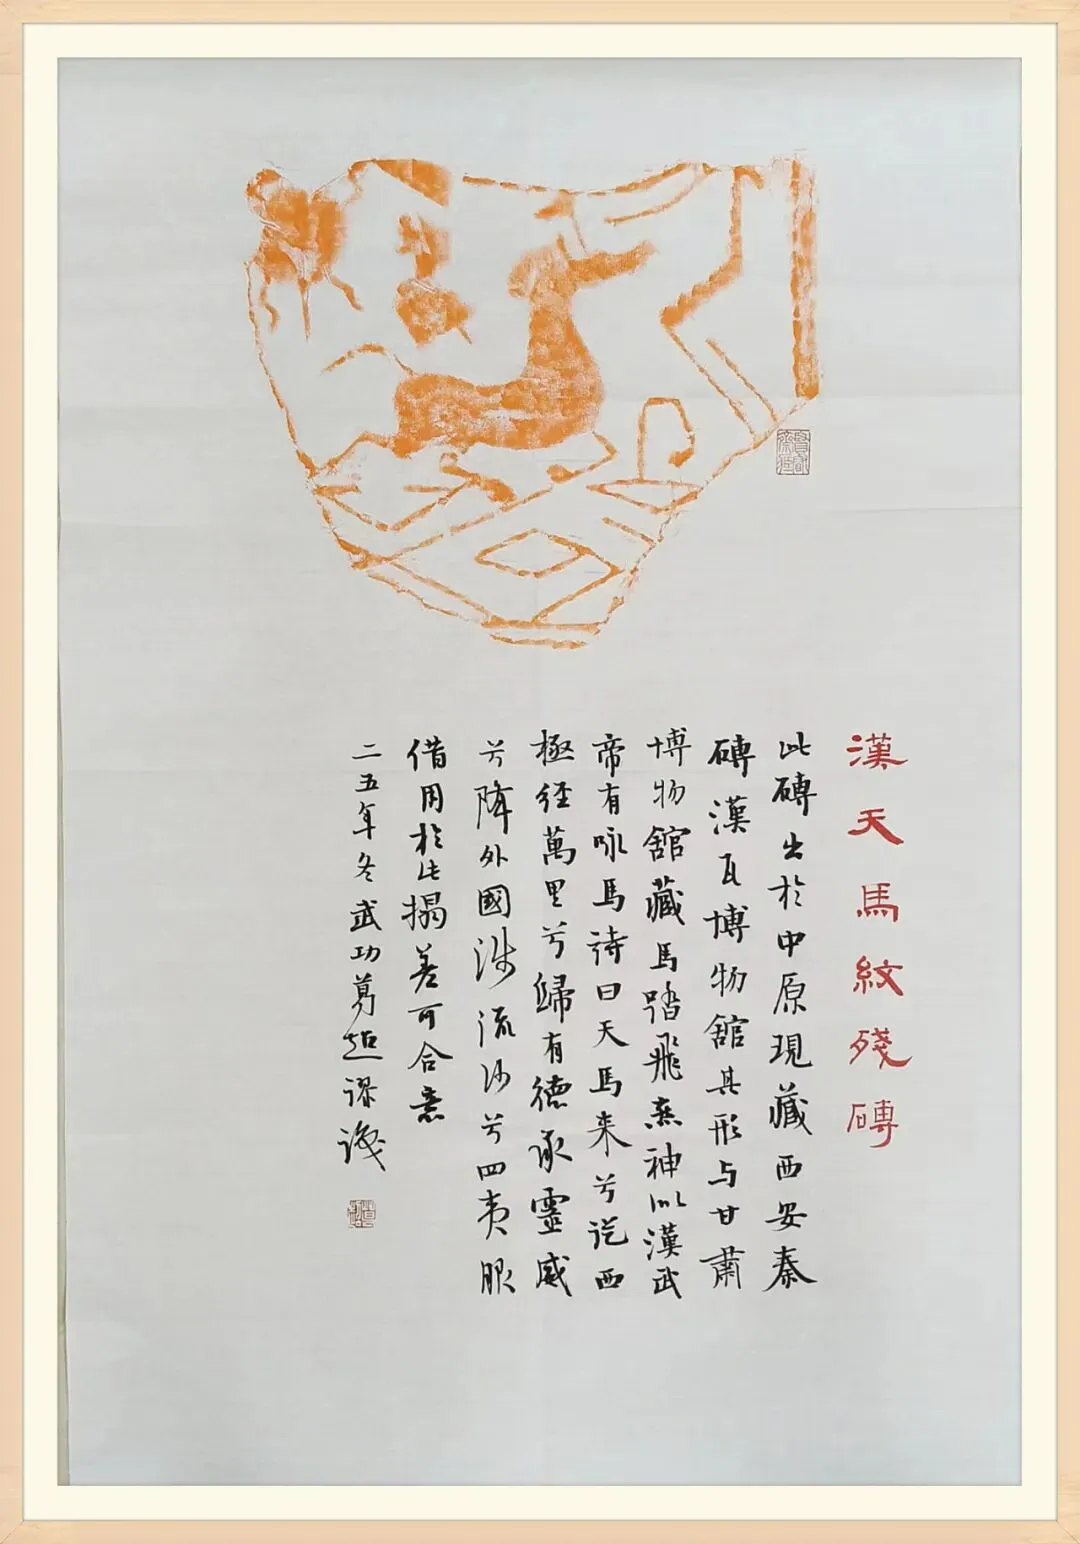 漢天馬紋殘磚
此磚出於中原現藏西安秦
磚漢瓦博物舘其形与甘肅
博物舘藏馬踏飛燕神似漢武
帝有咏馬詩曰天馬来兮從西
極經萬里兮歸有德承靈威
兮降外國涉流沙兮四夷服
借用於此搨差可合意
二五年冬武功葛超謬識